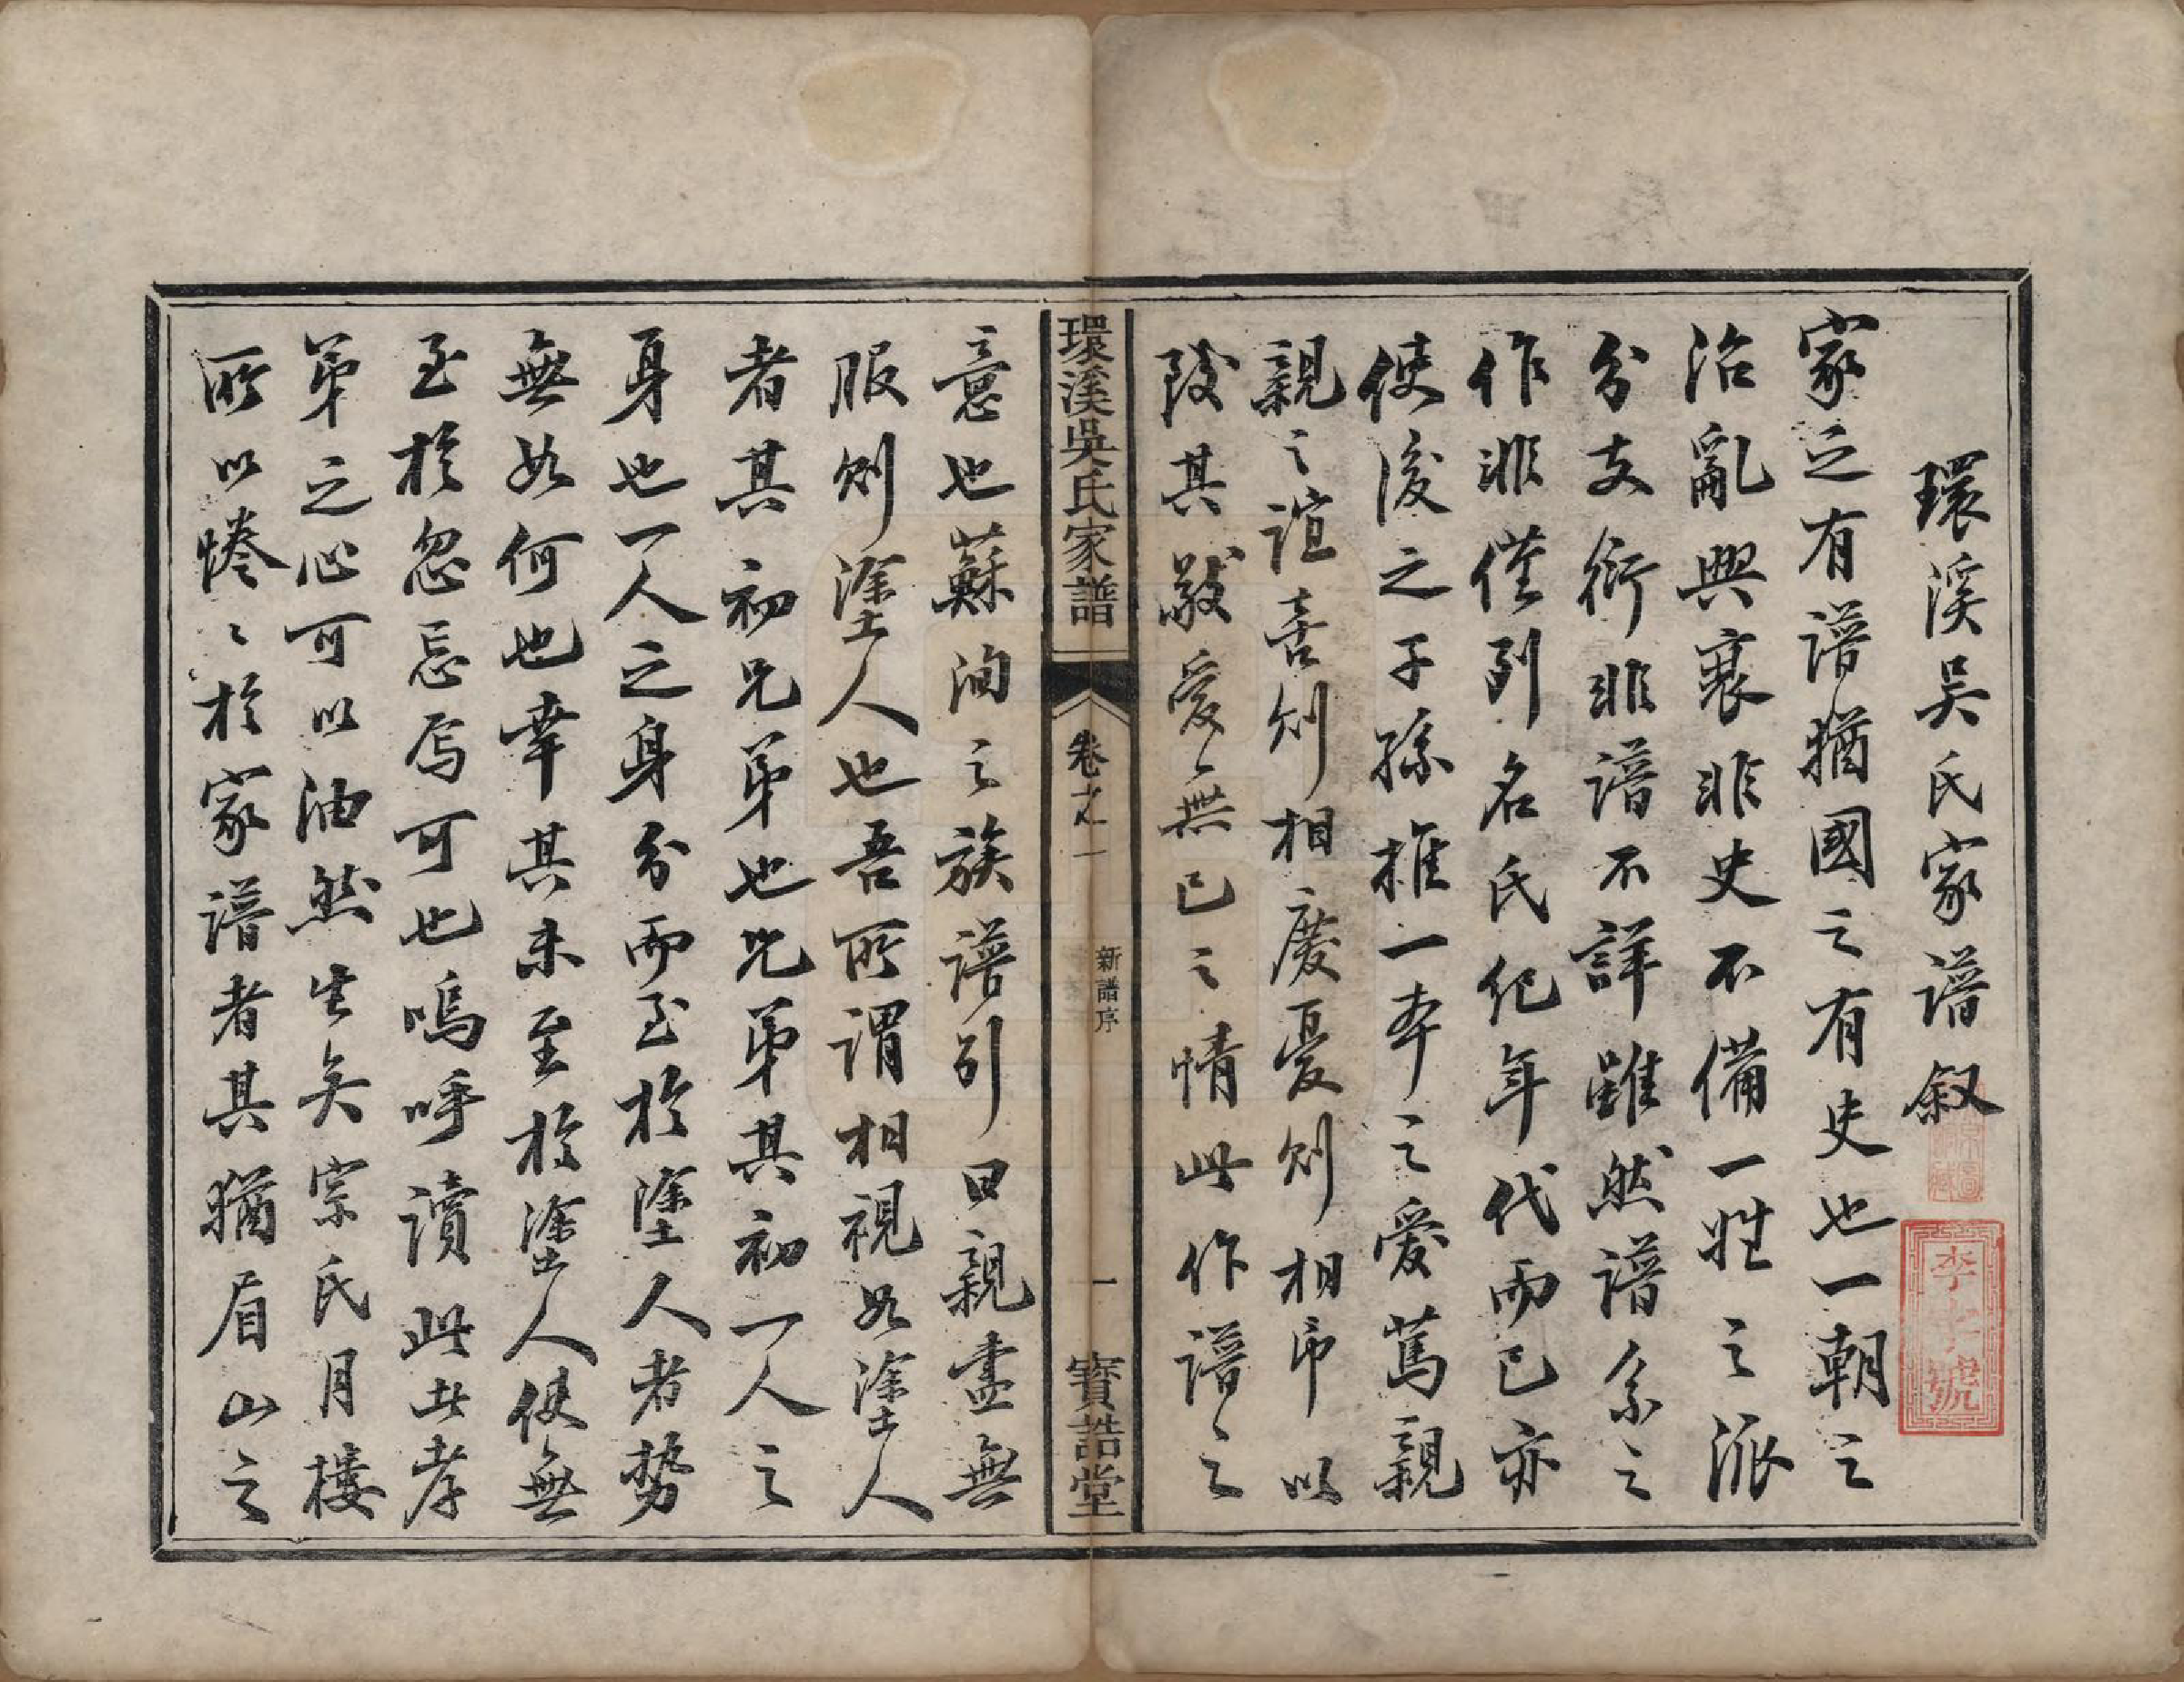 環溪吴氏家譜叙
家之有譜猶國之有史也一朝之
治亂興衰非史不備一姓之派
分支衍非譜不詳雖然譜系之
作非僅列名氏紀年代而已亦
使後之子孫推一本之愛篤親
親之誼喜則相慶憂則相弔以
致其敬愛無已之情此作譜之
環溪吳氏家譜
卷之一
新譜序
一
寶誥堂
意也蘇洵之族譜引曰親盡無
服則塗人也吾所謂相視如塗人
者其初兄弟也兄弟其初一人之
身也一人之身分而至於塗人者勢
無如何也幸其未至於塗人使無
至於忽忘焉可也嗚呼讀此此孝
弟之心可以油然生矣宗氏月樓
所以惓〻於家譜者其猶眉山之